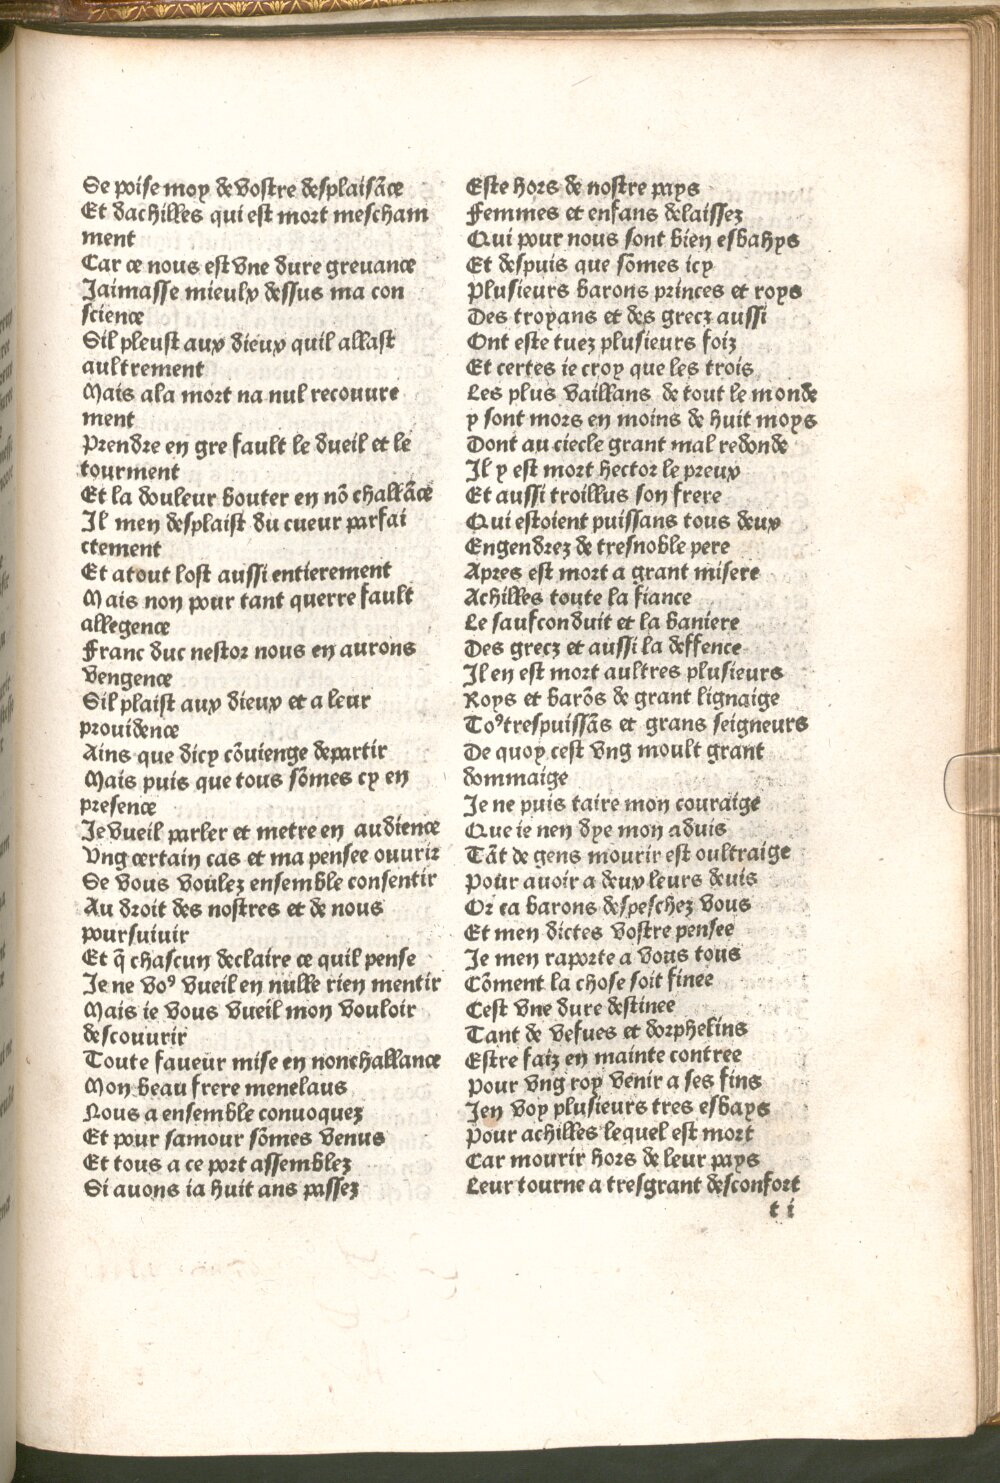 Se poise moy de vostre desplaisãce
Et dachilles qui est mort mescham
ment
Car ce nous est vne dure greuance
Jaimasse mieulx dessus ma con
science
Sil pleust aux dieux quil allast
aultrement
Mais ala mort na nul recouure
ment
Prendre en gre fault le dueil et le
tourment
Et la douleur bouter en nõ challãce
Il men desplaist du cueur parfai
ctement
Et atout lost aussi entierement
Mais non pour tant querre fault
allegence
Franc duc nestor nous en aurons
vengence
Sil plaist aux dieux et a leur
prouidence
Ains que dicy cõuienge departir
Mais puis que tous sõmes cy en
presence
Je vueil parler et metre en audience
Vng certain cas et ma pensee ouurir
Se vous voulez ensemble consentir
Au droit des nostres et de nous
poursuiuir
Et q̃ chascun declaire ce quil pense
Je ne voꝰ vueil en nulle rien mentir
Mais ie vous vueil mon vouloir
descouurir
Toute faueur mise en nonchallance
Mon beau frere menelaus
Nous a ensemble conuoquez
Et pour samour sõmes venus
Et tous a ce port assemblez
Si auons ia huit ans passez
Este hors de nostre pays
Femmes et enfans delaissez
Qui pour nous sont bien esbahys
Et despuis que sõmes icy
Plusieurs barons princes et roys
Des troyans et des grecz aussi
Ont este tuez plusieurs foiz
Et certes ie croy que les trois
Les plus vaillans de tout le monde
y sont mors en moins de huit moys
Dont au ciecle grant mal redonde
Il y est mort hector le preux
Et aussi troillus son frere
Qui estoient puissans tous deux
Engendrez de tresnoble pere
Apres est mort a grant misere
Achilles toute la fiance
Le saufconduit et la baniere
Des grecz et aussi la deffence
Il en est mort aultres plusieurs
Roys et barõs de grant lignaige
Toꝰ trespuissãs et grans seigneurs
De quoy cest vng moult grant
dommaige
Je ne puis taire mon couraige
Que ie nen dye mon aduis
Tãt de gens mourir est oultraige
Pour auoir a deux leurs deuis
Or ca barons despeschez vous
Et men dictes vostre pensee
Je men raporte a vous tous
Cõment la chose soit finee
Cest vne dure destinee
Tant de vefues et dorphelins
Estre faiz en mainte contree
Pour vng roy venir a ses fins
Jen voy plusieurs tres esbays
Pour achilles lequel est mort
Car mourir hors de leur pays
Leur tourne a tresgrant desconfort
t i